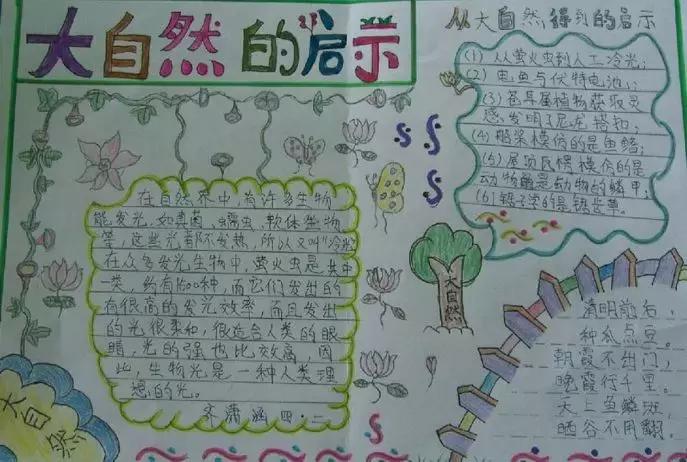 大自然的启示
从大自然得到的启示
(1) 从萤火虫到人工冷光;
(2) 电鱼与伏特电池;
(3) 苍耳属植物获取灵
感发明了尼龙搭扣;
(4) 船桨模仿的是鱼鳍;
(5) 屋顶瓦楞模仿的是
动物的鳞甲;
(6) 锯子学的是锯齿草。
在自然界中,有许多生物
能发光,如真菌、蠕虫、软体生物
等,这些光都不发热,所以又叫"冷光"
在众多发光生物中,萤火虫是其中
一类,约有1500种,而它们发出的
有很高的发光效率,而且发出
的光很柔和,很适合人类的眼
睛,光的强也比效高,因
此,生物光是一种人类理
想的光。
齐潇涵 四·二
大自然
清明前后,
种瓜点豆。
朝霞不出门,
晚霞行千里。
天上鱼鳞斑,
晒谷不用翻。
大自然